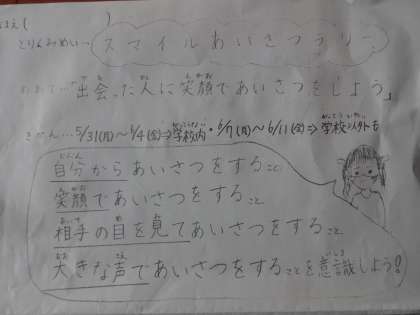 なまえ(　　　　　)
とりくみめい… スマイルあいさつラリー
めあて…「出会った人に笑顔であいさつをしよう」
きかん…5/31(月)〜6/4(金)⇒学校内・6/7(月)〜6/11(金)⇒学校以外も
自分からあいさつをすること
笑顔であいさつをすること
相手の目を見てあいさつをすること
大きな声であいさつをすることを意識しよう!